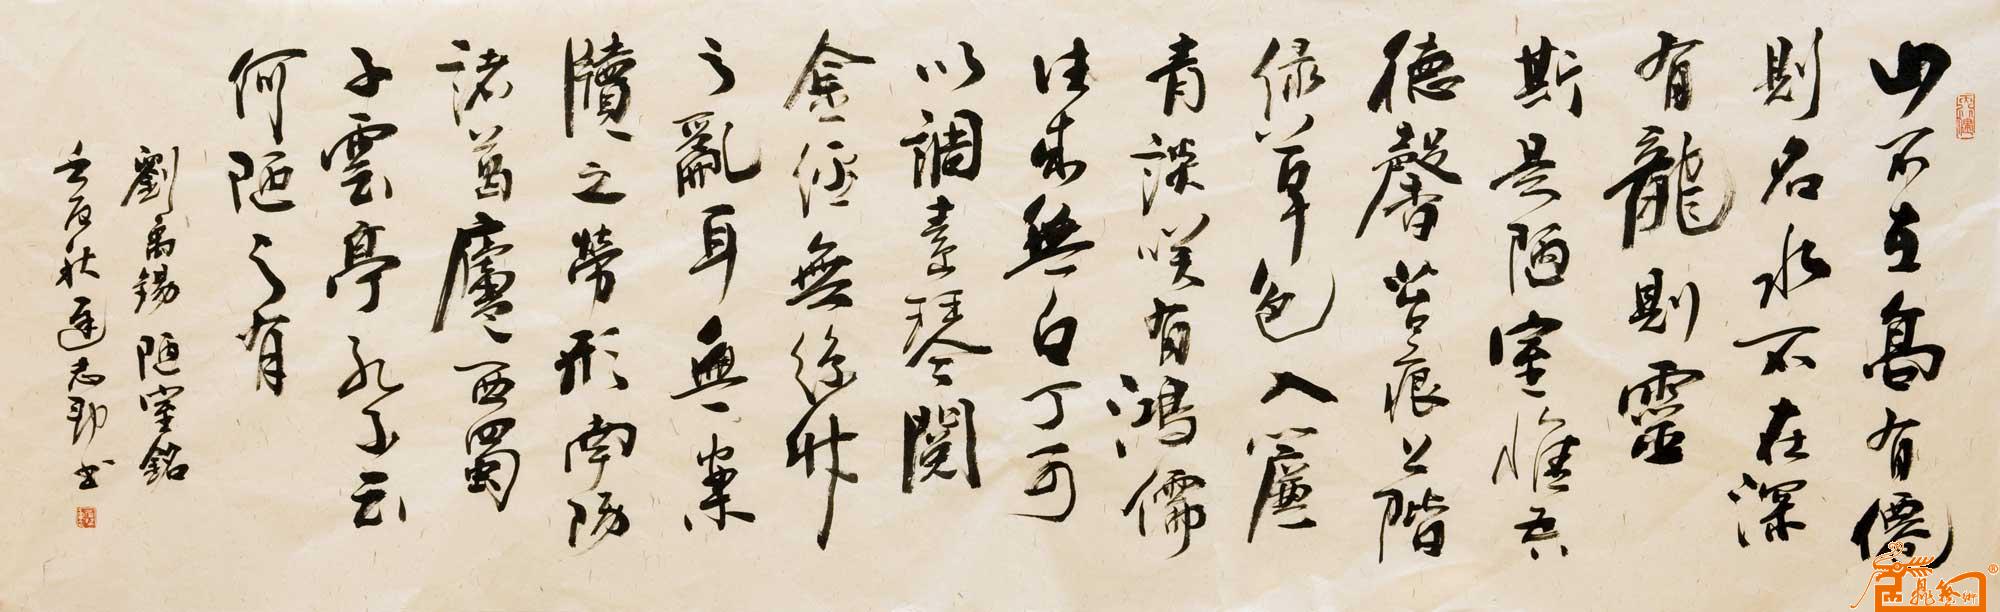 山不在高有僊
則名水不在深
有龍則靈
斯是陋室惟吾
德馨苔痕上階
緑草色入簾
青談咲有鴻儒
往来無白丁可
以調素琴閱
金經無絲竹
之亂耳無案
牘之勞形南陽
諸葛廬西蜀
子雲亭孔子云
何陋之有
劉禹錫陋室銘
壬辰秋志书